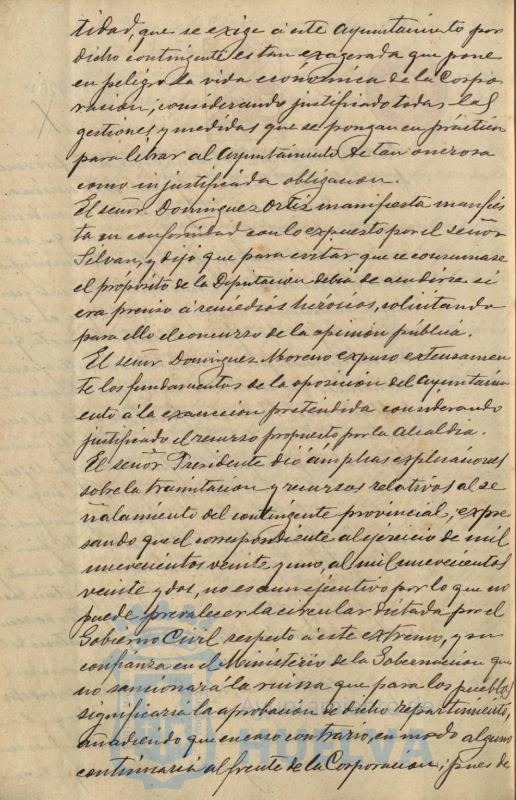 tidad, que se exige á este Ayuntamiento por
dicho contingente es tan exagerada que pone
en peligro la vida económica de la Corpo-
ración; considerando justificado todas las
gestiones y medidas que se pongan en práctica
para librar al Ayuntamiento de tan onerosa
como injustificada obligacion.
El señor Dominguez Ortiz manifiesta manfies
ta su conformidad con lo expuesto por el señor
Selvan, y dijo que para evitar que se consumase
el propósito de la Diputacion debia de acudirse si
era preciso á remedios heroicos, solicitando
para ello el concurso de la opinión pública.
El señor Dominguez Moreno expuso extensamen
te los fundamentos de la oposición del Ayuntami
ento á la exaccion pretendida considerando
justificado el recurso propuesto por la Alcaldia.
El señor Presidente dió ámplias explicaciones
sobre la tramitacion y recursos relativos al se
ñalamiento del contingente provincial, expre
sando que el correspondiente al ejercicio de mil
novecientos veinte y uno, al mil novecientos
veinte y dos, no es aun ejecutivo por lo que no
puede prevalecer la circular dictada por el
Gobierno Civil respecto á este extremo, y su
confianza en el Ministerio de la Gobernacion que
no sancionará la ruina que para los pueblos
significaria la aprobación de dicho repartimiento,
añadiendo que en caso contrario, en modo alguno
continuaria al frente de la Corporacion; pues de
Ayuntamiento de
HUELVA